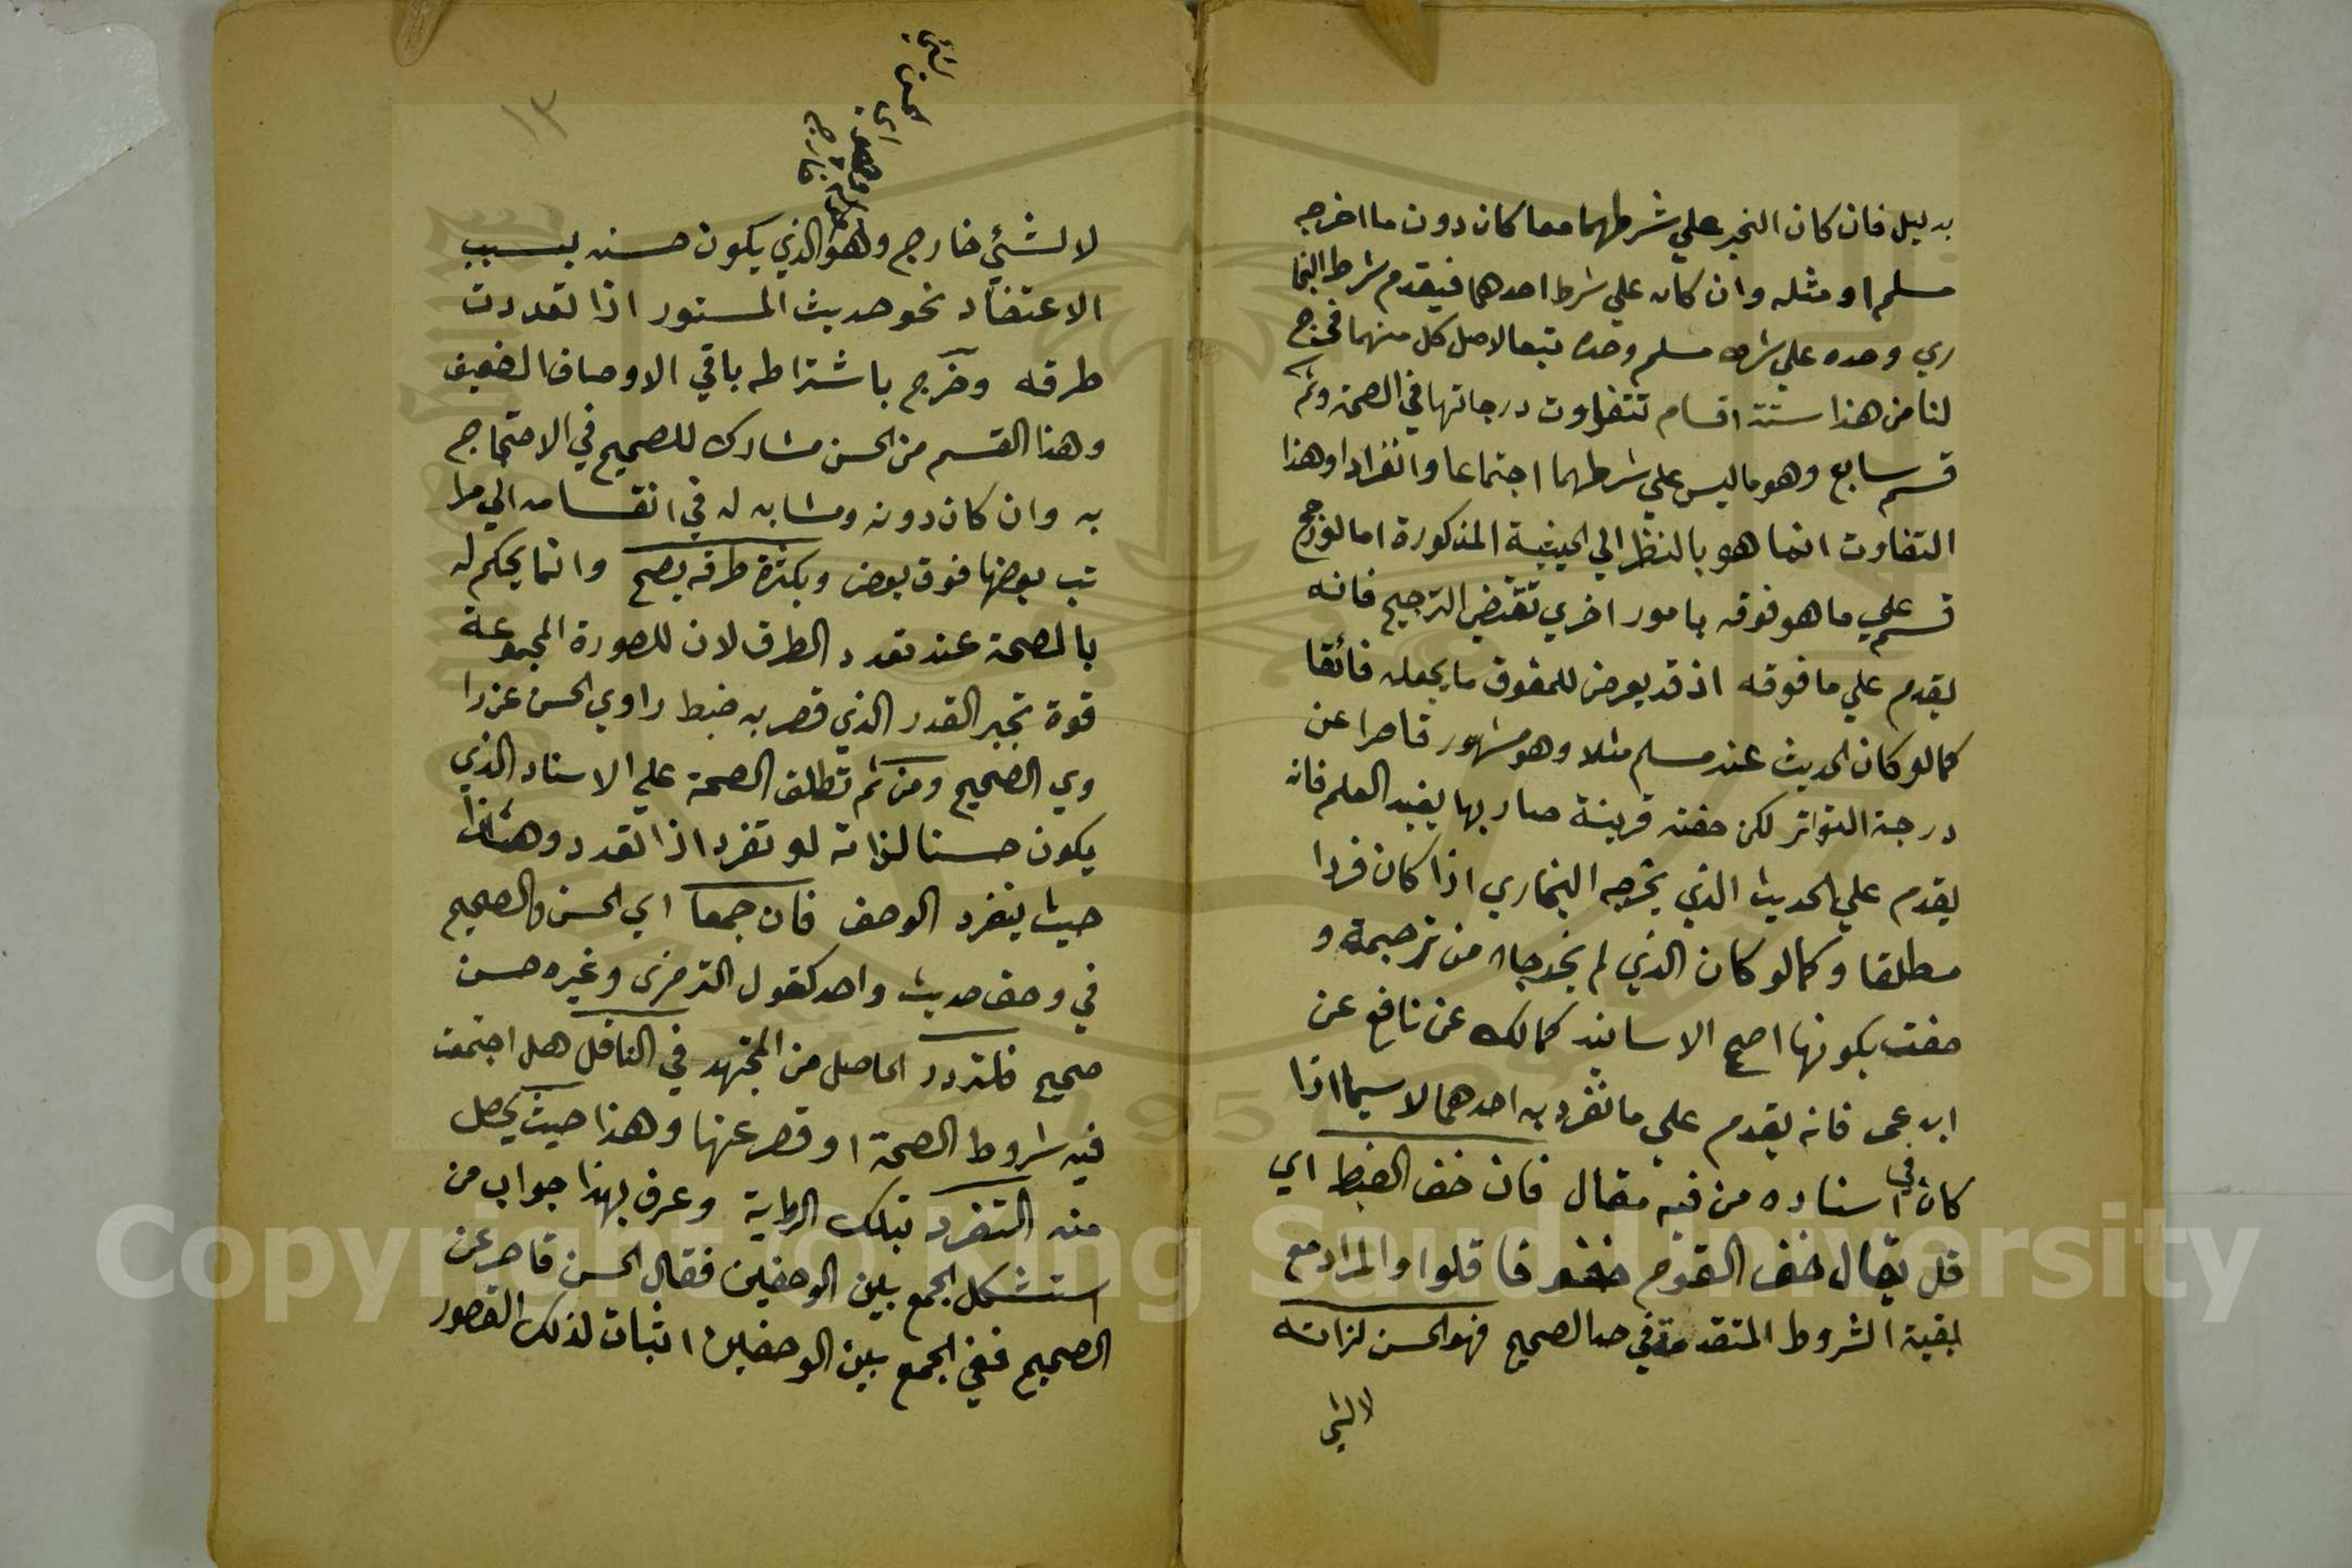 بدليل فان كان الخبر علي شرطهما معا كان دون ما اخرجه
مسلم او مثله وان كان علي شرط احدهما فيقدم شرط البخا
ري وحده علي شرط مسلم وحده تبعا لاصل كل منهما فخرج
لنا من هذا ستة اقسام تتفاوت درجاتها في الصحة وثم
قسم سابع وهو ما ليس علي شرطهما اجتماعا وانفرادا وهذا
التفاوت انما هو بالنظر الي الحيثية المذكورة اما لو رجح
قسم علي ما هو فوقه بامور اخري تقتضي الترجيح فانه
يقدم علي ما فوقه اذ قد يعرض للمفوق ما يجعله فائقا
كما لو كان الحديث عند مسلم مثلا وهو مشهور قاصرا عن
درجة التواتر لكن حفته قرينة صار بها يفيد العلم فانه
يقدم علي الحديث الذي يخرجه البخاري اذا كان فردا
مطلقا وكما لو كان الذي لم يخرجاه من ترجمة و
صفت بكونها اصح الاسانيد كمالك عن نافع عن
ابن عمر فانه يقدم علي ما تفرد به احدهما لا سيما اذا
كان في اسناده من فيه مقال فان خف الضبط اي
قل يقال خف القوم خفوفا قلوا والمراد مع
بقية الشروط المتقدمة في حد الصحيح فهو الحسن لذاته
لا لشي
١٣
لا لشئي خارج وهو الذي يكون حسنه بسبب
الاعتضاد نحو حديث المستور اذا تعددت
طرقه وخرج باشتراطه باقي الاوصاف الضعيف
وهذا القسم من الحسن مشارك للصحيح في الاحتجاج
به وان كان دونه ومشابه له في انقسامه الي مرا
تب بعضها فوق بعض وبكثرة طرقه يصح وانما يحكم له
بالصحة عند تعدد الطرق لان للصورة المجموعة
قوة تجبر القدر الذي قصر به ضبط راوي الحسن عن را
وي الصحيح ومن ثم تطلق الصحة علي الاسناد الذي
يكون حسنا لذاته لو تفرد اذا تعدد وهذا
حيث ينفرد الوصف فان جمعا اي الحسن والصحيح
في وصف حديث واحد كقول الترمزى وغيره حسن
صحيح فلتردد الحاصل من المجتهد في الناقل هل اجتمعت
فيه شروط الصحة او قصر عنها وهذا حيث يحصل
منه التفرد بتلك الرواية وعرف بهذا جواب من
استشكل الجمع بين الوصفين فقال الحسن قاصر عن
الصحيح ففي الجمع بين الوصفين اثبات لذلك القصور
Copyright © King Saud University